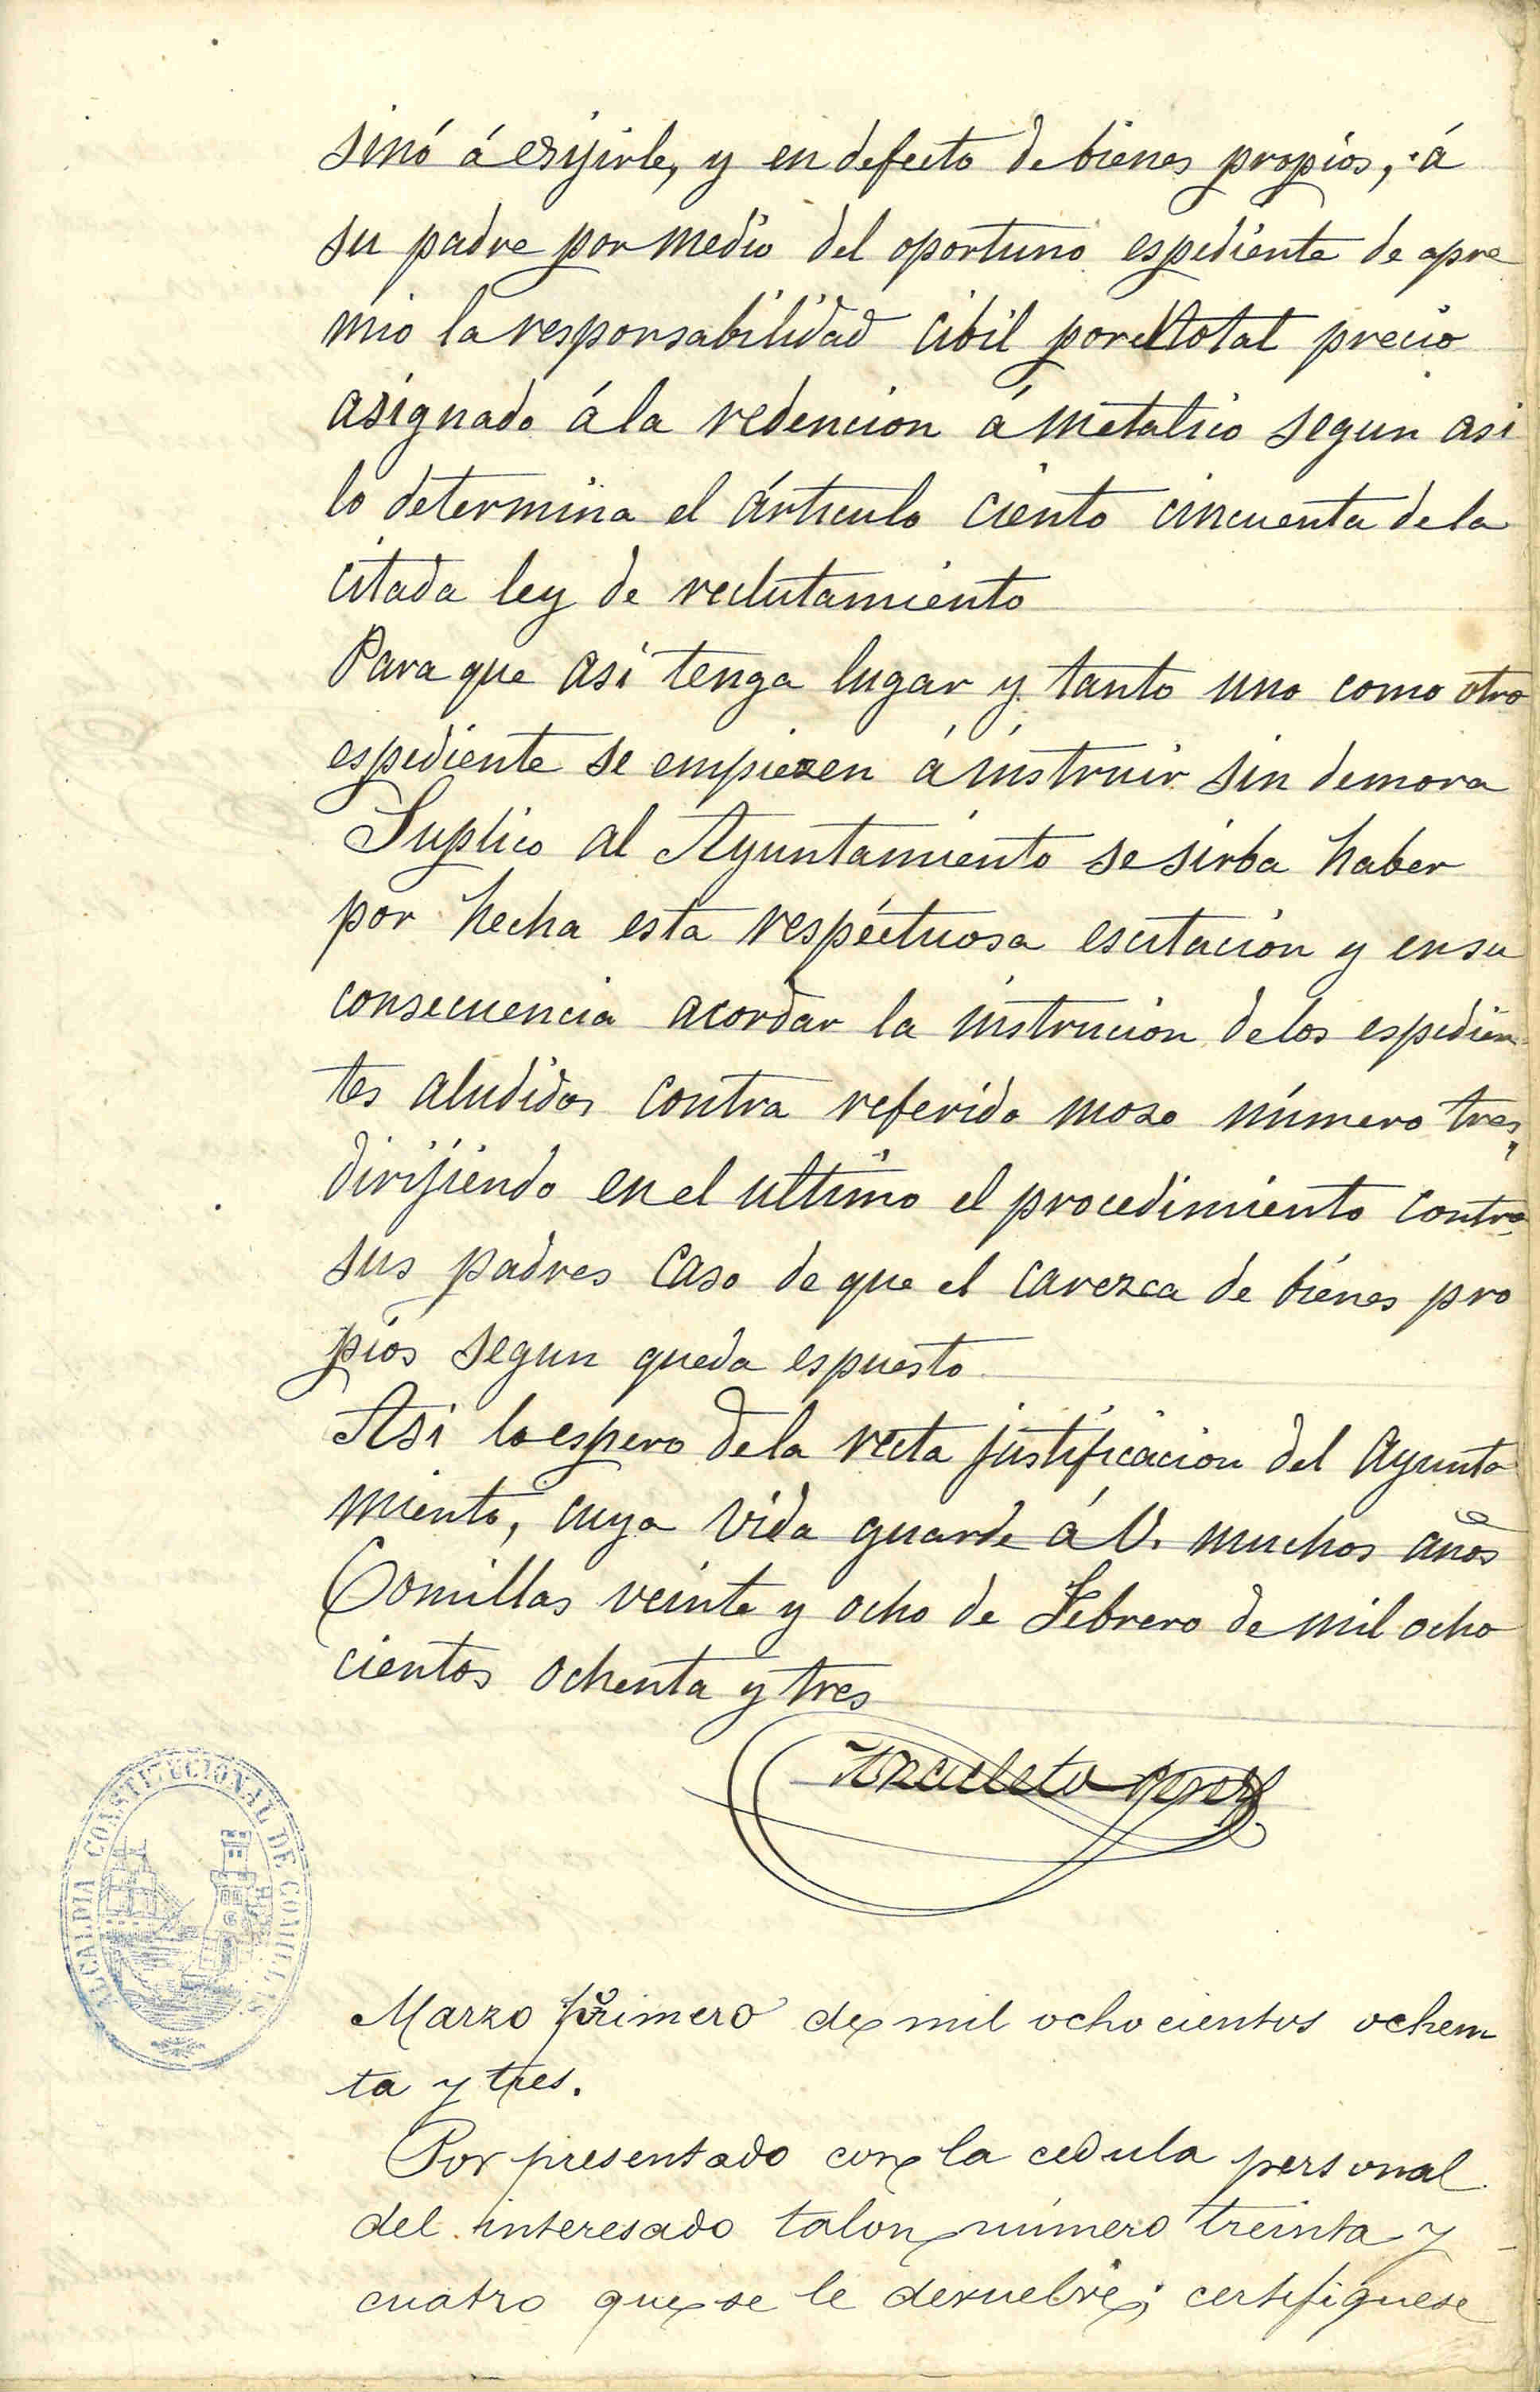 sinó á esijirle, y en defecto de bienes propios, á
su padre por medio del oportuno espediente de apre
mio la responsabilidad cibil por el total precio
asignado á la redencion á metalico segun asi
lo determina el árticulo ciento cincuenta de la
citada ley de reclutamiento
Para que asi tenga lugar y tanto uno como otro
espediente se empiezen á instruir sin demora
Suplico al Ayuntamiento se sirba haber
por hecha esta respectuosa escitacion y en su
consecuencia acordar la instrucion de los espedien
tes aludidos contra referido mozo número tres,
dirijiendo en el ultimo el procedimiento contra
sus padres caso de que el carezca de bienes pro
pios segun queda espuesto
Asi lo espero de la recta justificacion del Ayunta
miento, cuya vida guarde á V. muchos años
Comillas veinte y ocho de Febrero de mil ocho
cientos ochenta y tres
Anacleto
ALCALDIA CONSTITUCIONAL DE COMILLAS
Marzo primero de mil ochocientos ochen
ta y tres.
Por presentado con la cedula personal
del interesado talon número treinta y
cuatro que se le devuelve; certifiquese